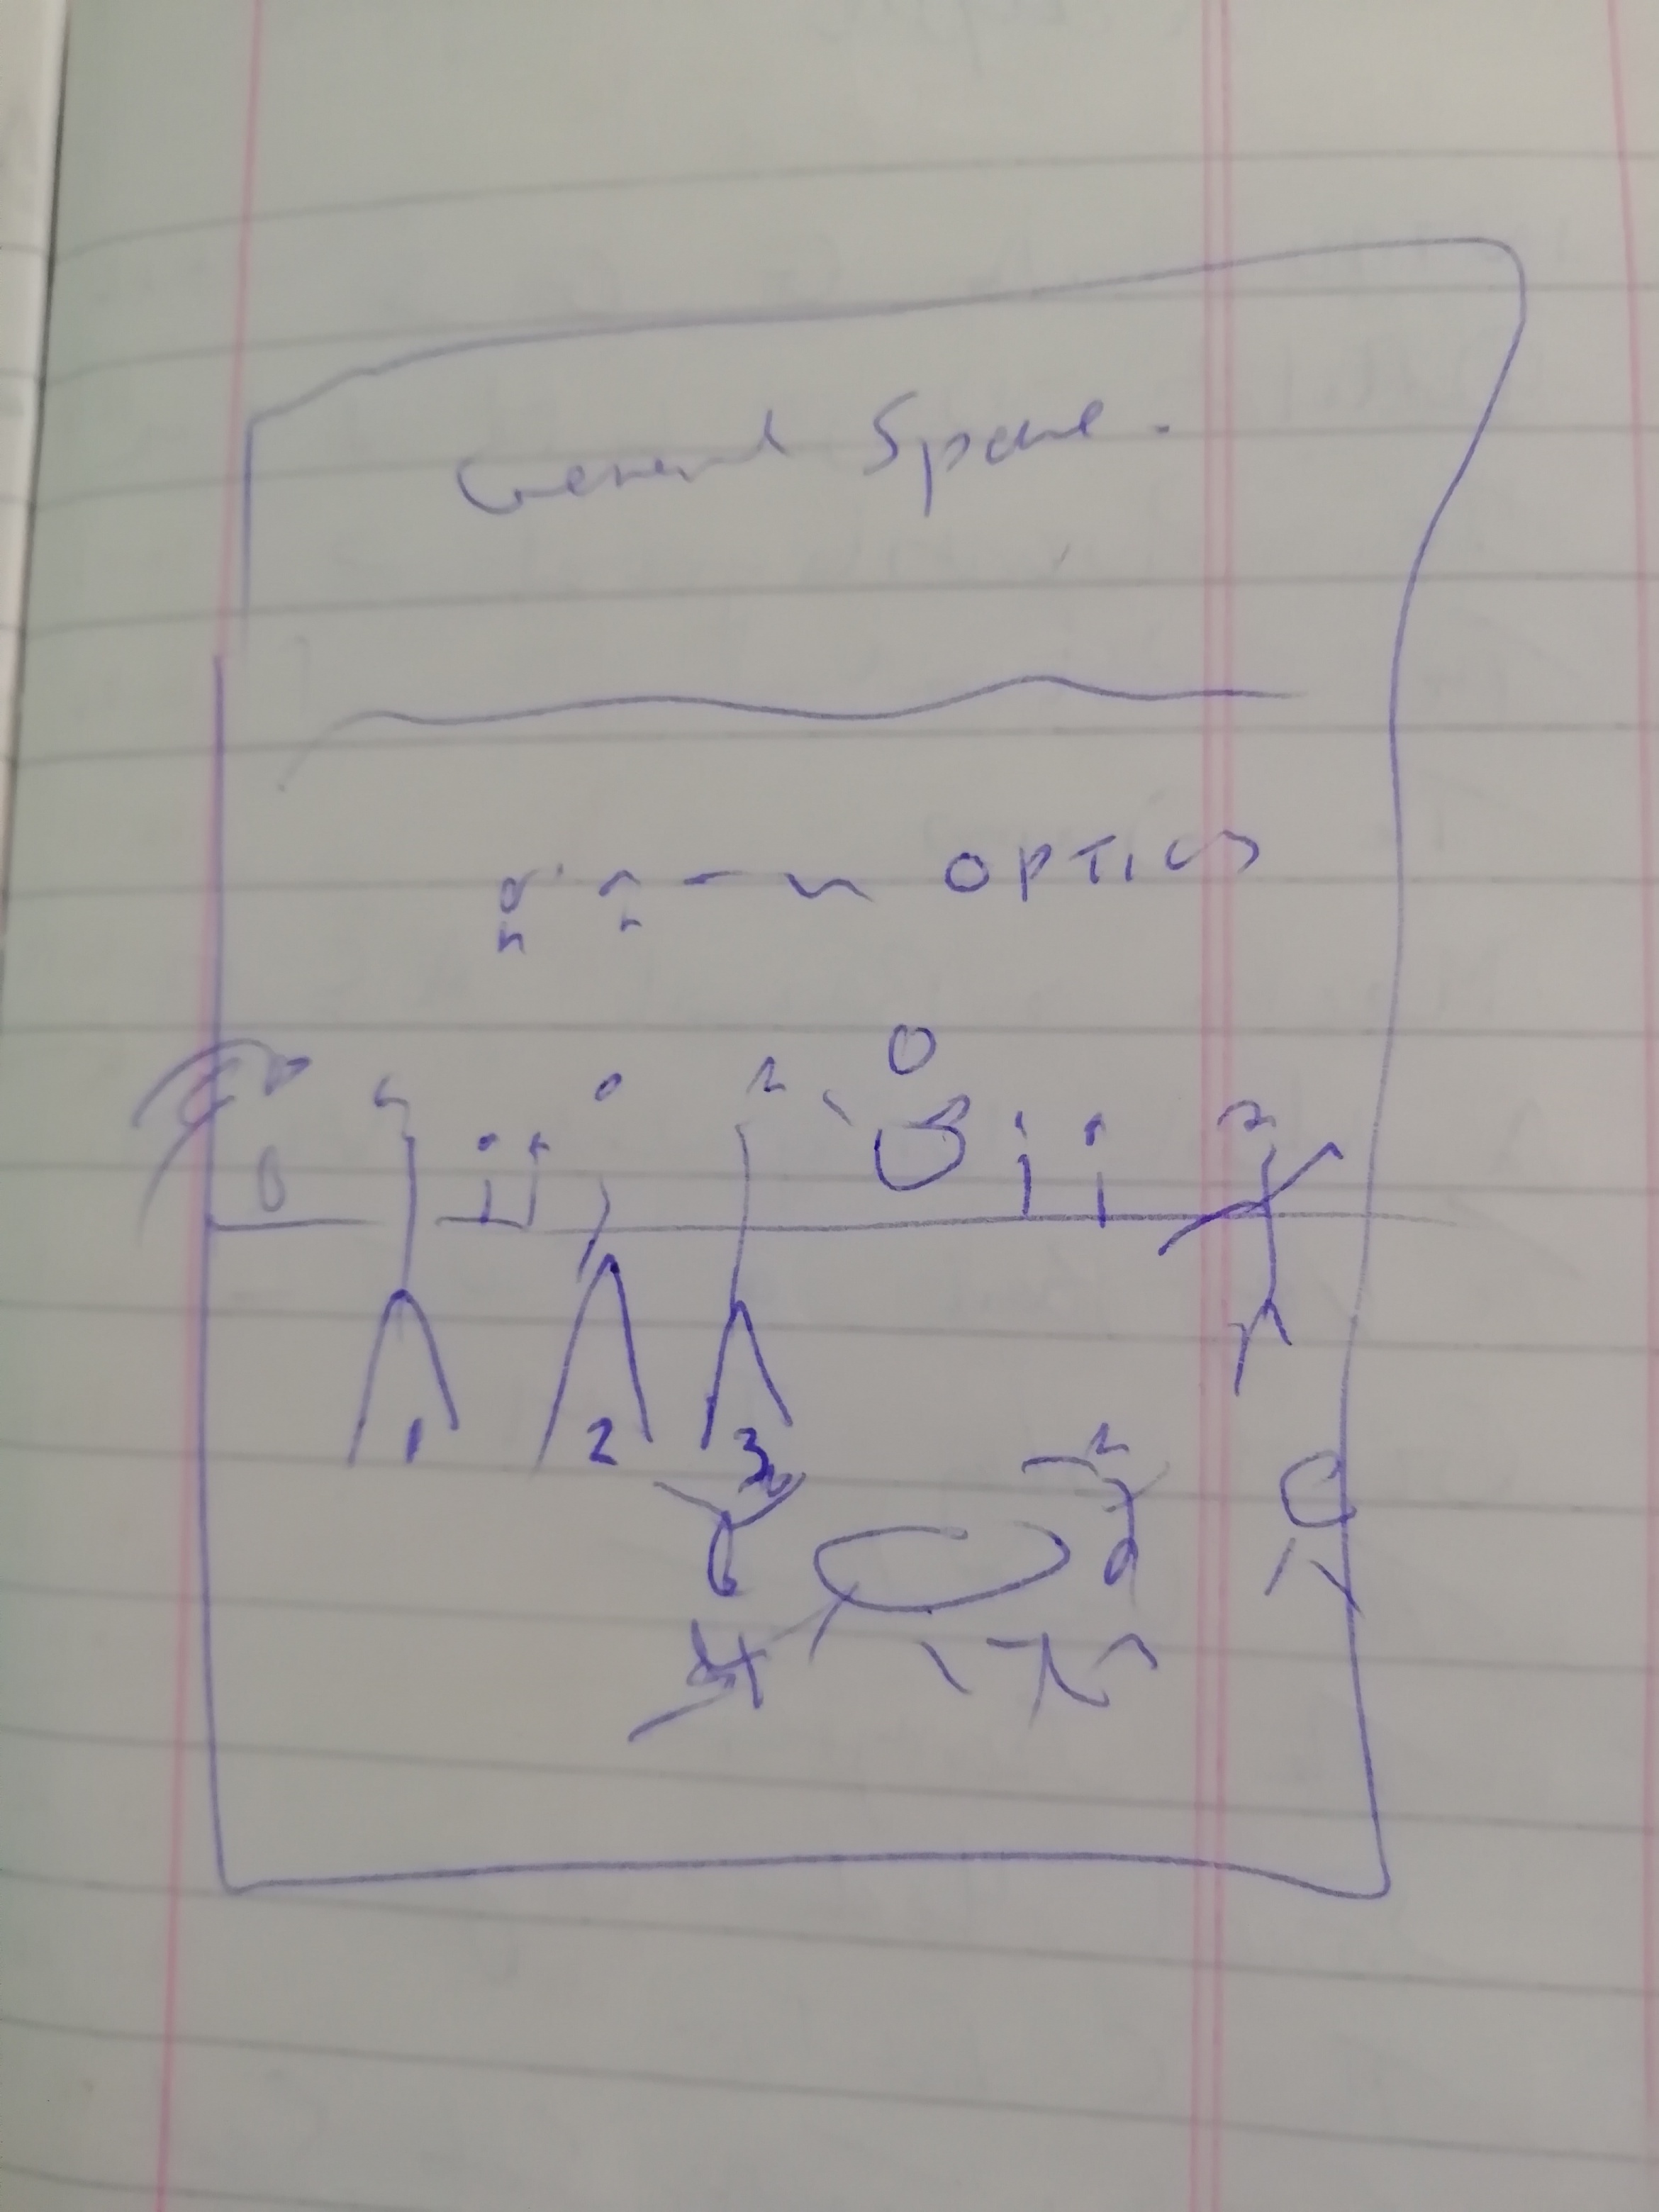 General Space.
OPTICS
1 2 3
4